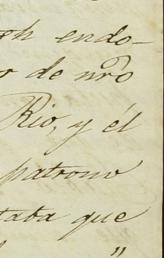 gh endo-
o de nro
Rio, y él
patrono
taba que
"